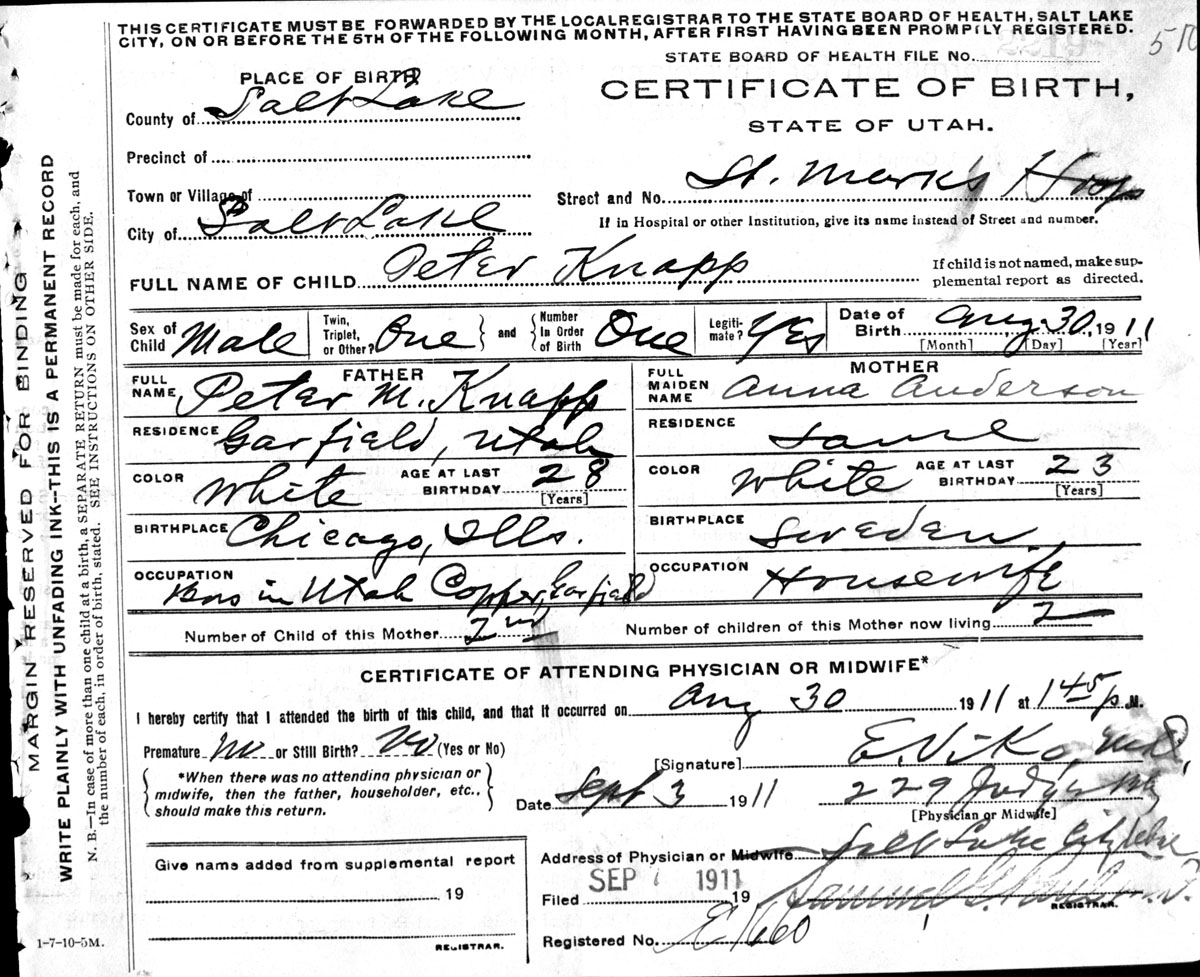 THIS CERTIFICATE MUST BE FORWARDED BY THE LOCAL REGISTRAR TO THE STATE BOARD OF HEALTH, SALT LAKE
CITY, ON OR BEFORE THE 5TH OF THE FOLLOWING MONTH, AFTER FIRST HAVING BEEN PROMPTLY REGISTERED.
STATE BOARD OF HEALTH FILE No.
PLACE OF BIRTH
CERTIFICATE OF BIRTH,
STATE OF UTAH.
County of Salt Lake
Precinct of
Town or Village of
Street and No. St. Mark's Hosp
City of Salt Lake
If in Hospital or other Institution, give its name instead of Street and number.
FULL NAME OF CHILD Peter Knapp
If child is not named, make sup-
plemental report as directed.
Sex of Child Male
Twin, Triplet, or Other? One
and Number In Order of Birth One
Legiti-mate? Yes
Date of Birth Aug. 30, 1911
[Month] [Day] [Year]
FATHER
FULL NAME Peter M. Knapp
RESIDENCE Garfield, Utah
COLOR White AGE AT LAST BIRTHDAY 28
[Years]
BIRTHPLACE Chicago, Ills.
OCCUPATION Boss in Utah Copper, Garfield
MOTHER
FULL MAIDEN NAME Anna Anderson
RESIDENCE Same
COLOR White AGE AT LAST BIRTHDAY 23
[Years]
BIRTHPLACE Sweden
OCCUPATION Housewife
Number of Child of this Mother 2nd
Number of children of this Mother now living 2
CERTIFICATE OF ATTENDING PHYSICIAN OR MIDWIFE*
I hereby certify that I attended the birth of this child, and that it occurred on Aug 30 1911 at 1 45 p. M.
Premature no or Still Birth? No (Yes or No)
*When there was no attending physician or
midwife, then the father, householder, etc.,
should make this return.
[Signature] E. Viko, M.D.
Date Sept 3 1911
229 Judge Bldg
[Physician or Midwife]
Give name added from supplemental report
19
REGISTRAR.
Address of Physician or Midwife Salt Lake City
SEP 1911
Filed 19 Samuel G. Paul M.D.
REGISTRAR.
Registered No.
1-7-10-5M.
MARGIN RESERVED FOR BINDING
WRITE PLAINLY WITH UNFADING INK--THIS IS A PERMANENT RECORD
N. B.—In case of more than one child at a birth, a SEPARATE RETURN must be made for each, and
the number of each, in order of birth, stated. SEE INSTRUCTIONS ON OTHER SIDE.